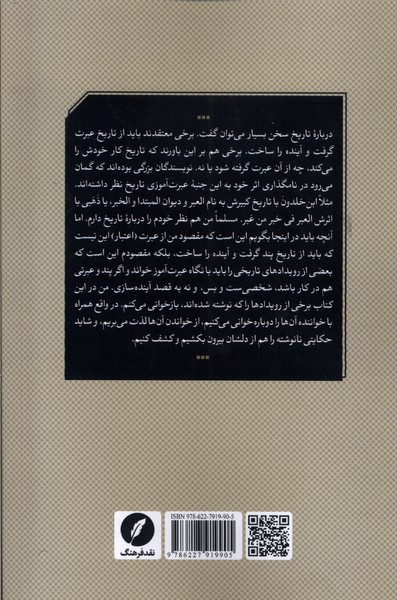 دربارهٔ تاریخ سخن بسیار می‌توان گفت. برخی معتقدند باید از تاریخ عبرت
گرفت و آینده را ساخت. برخی هم بر این باورند که تاریخ کار خودش را
می‌کند، چه از آن عبرت گرفته شود یا نه. نویسندگان بزرگی بوده‌اند که گمان
می‌رود در نامگذاری اثر خود به این جنبهٔ عبرت‌آموزی تاریخ نظر داشته‌اند.
مثلاً ابن‌خلدون با تاریخ کبیرش به نام العبر و دیوان المبتدا و الخبر، یا ذهبی با
اثرش العبر فی خبر من غبر. مسلماً من هم نظر خودم را دربارهٔ تاریخ دارم، اما
آنچه باید در اینجا بگویم این است که مقصود من از عبرت (اعتبار) این نیست
که باید از تاریخ پند گرفت و آینده را ساخت، بلکه مقصودم این است که
بعضی از رویدادهای تاریخی را باید با نگاه عبرت‌آموز خواند و اگر پند و عبرتی
هم در کار باشد، شخصی‌ست و بس، و نه به قصد آینده‌سازی. من در این
کتاب برخی از رویدادها را که نوشته شده‌اند، بازخوانی می‌کنم. در واقع همراه
با خواننده آن‌ها را دوباره‌خوانی می‌کنیم، از خواندن آن‌ها لذت می‌بریم، و شاید
حکایتی نانوشته را هم از دلشان بیرون بکشیم و کشف کنیم.
نقد فرهنگ
ISBN 978-622-7919-90-5
9 786227 919905